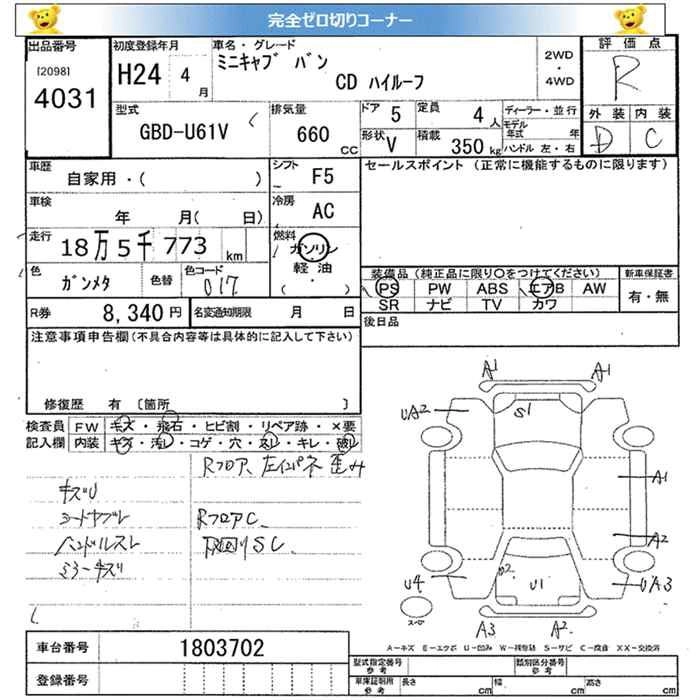 完全ゼロ切りコーナー
出品番号 初度登録年月 車名・グレード 評価点
[2098] 4031
H24 4 月
ミニキャブ バン
CD ハイルーフ
2WD・4WD
R
型式 GBD-U61V
排気量 660 CC
ドア 5 定員 4 人
ディーラー・並行
モデル年式 年
形状 V 積載 350 kg ハンドル 左・右
外装 内装
D C
車歴 自家用・( )
シフト F5
セールスポイント (正常に機能するものに限ります)
車検 年 月( 日)
冷房 AC
走行 18万5千773 km
燃料 ガソリン
軽油
( ・ )
色 ガンメタ 色替 色コード 017
装備品 (純正品に限り○をつけてください) 新車保証書
PS PW ABS エアB AW 有・無
SR ナビ TV カワ
R券 8,340 円 名変通知期限 月 日
後日品
注意事項申告欄(不具合内容等は具体的に記入して下さい)
修復歴 有 〔箇所 〕
検査員 FW キズ・飛石・ヒビ割・リペア跡・×要
記入欄 内装 キズ・汚レ・コゲ・穴・スレ・キレ・破レ
Rフロア、左インパネ歪み
キズU
シートヤブレ RフロアC
ハンドルスレ SC
ミラーキズ
A1 A1
UA2 S1
A1
A2
U4 U2 U1 UA3
スペア
A3 A2
A−キズ E−エクボ U−凹み W−補修跡 S−サビ C−腐食 XX−交換済
車台番号 1803702
登録番号
型式指定番号 参考 類別区分番号 参考
車庫証明用 参考 長さ cm 幅 cm 高さ cm